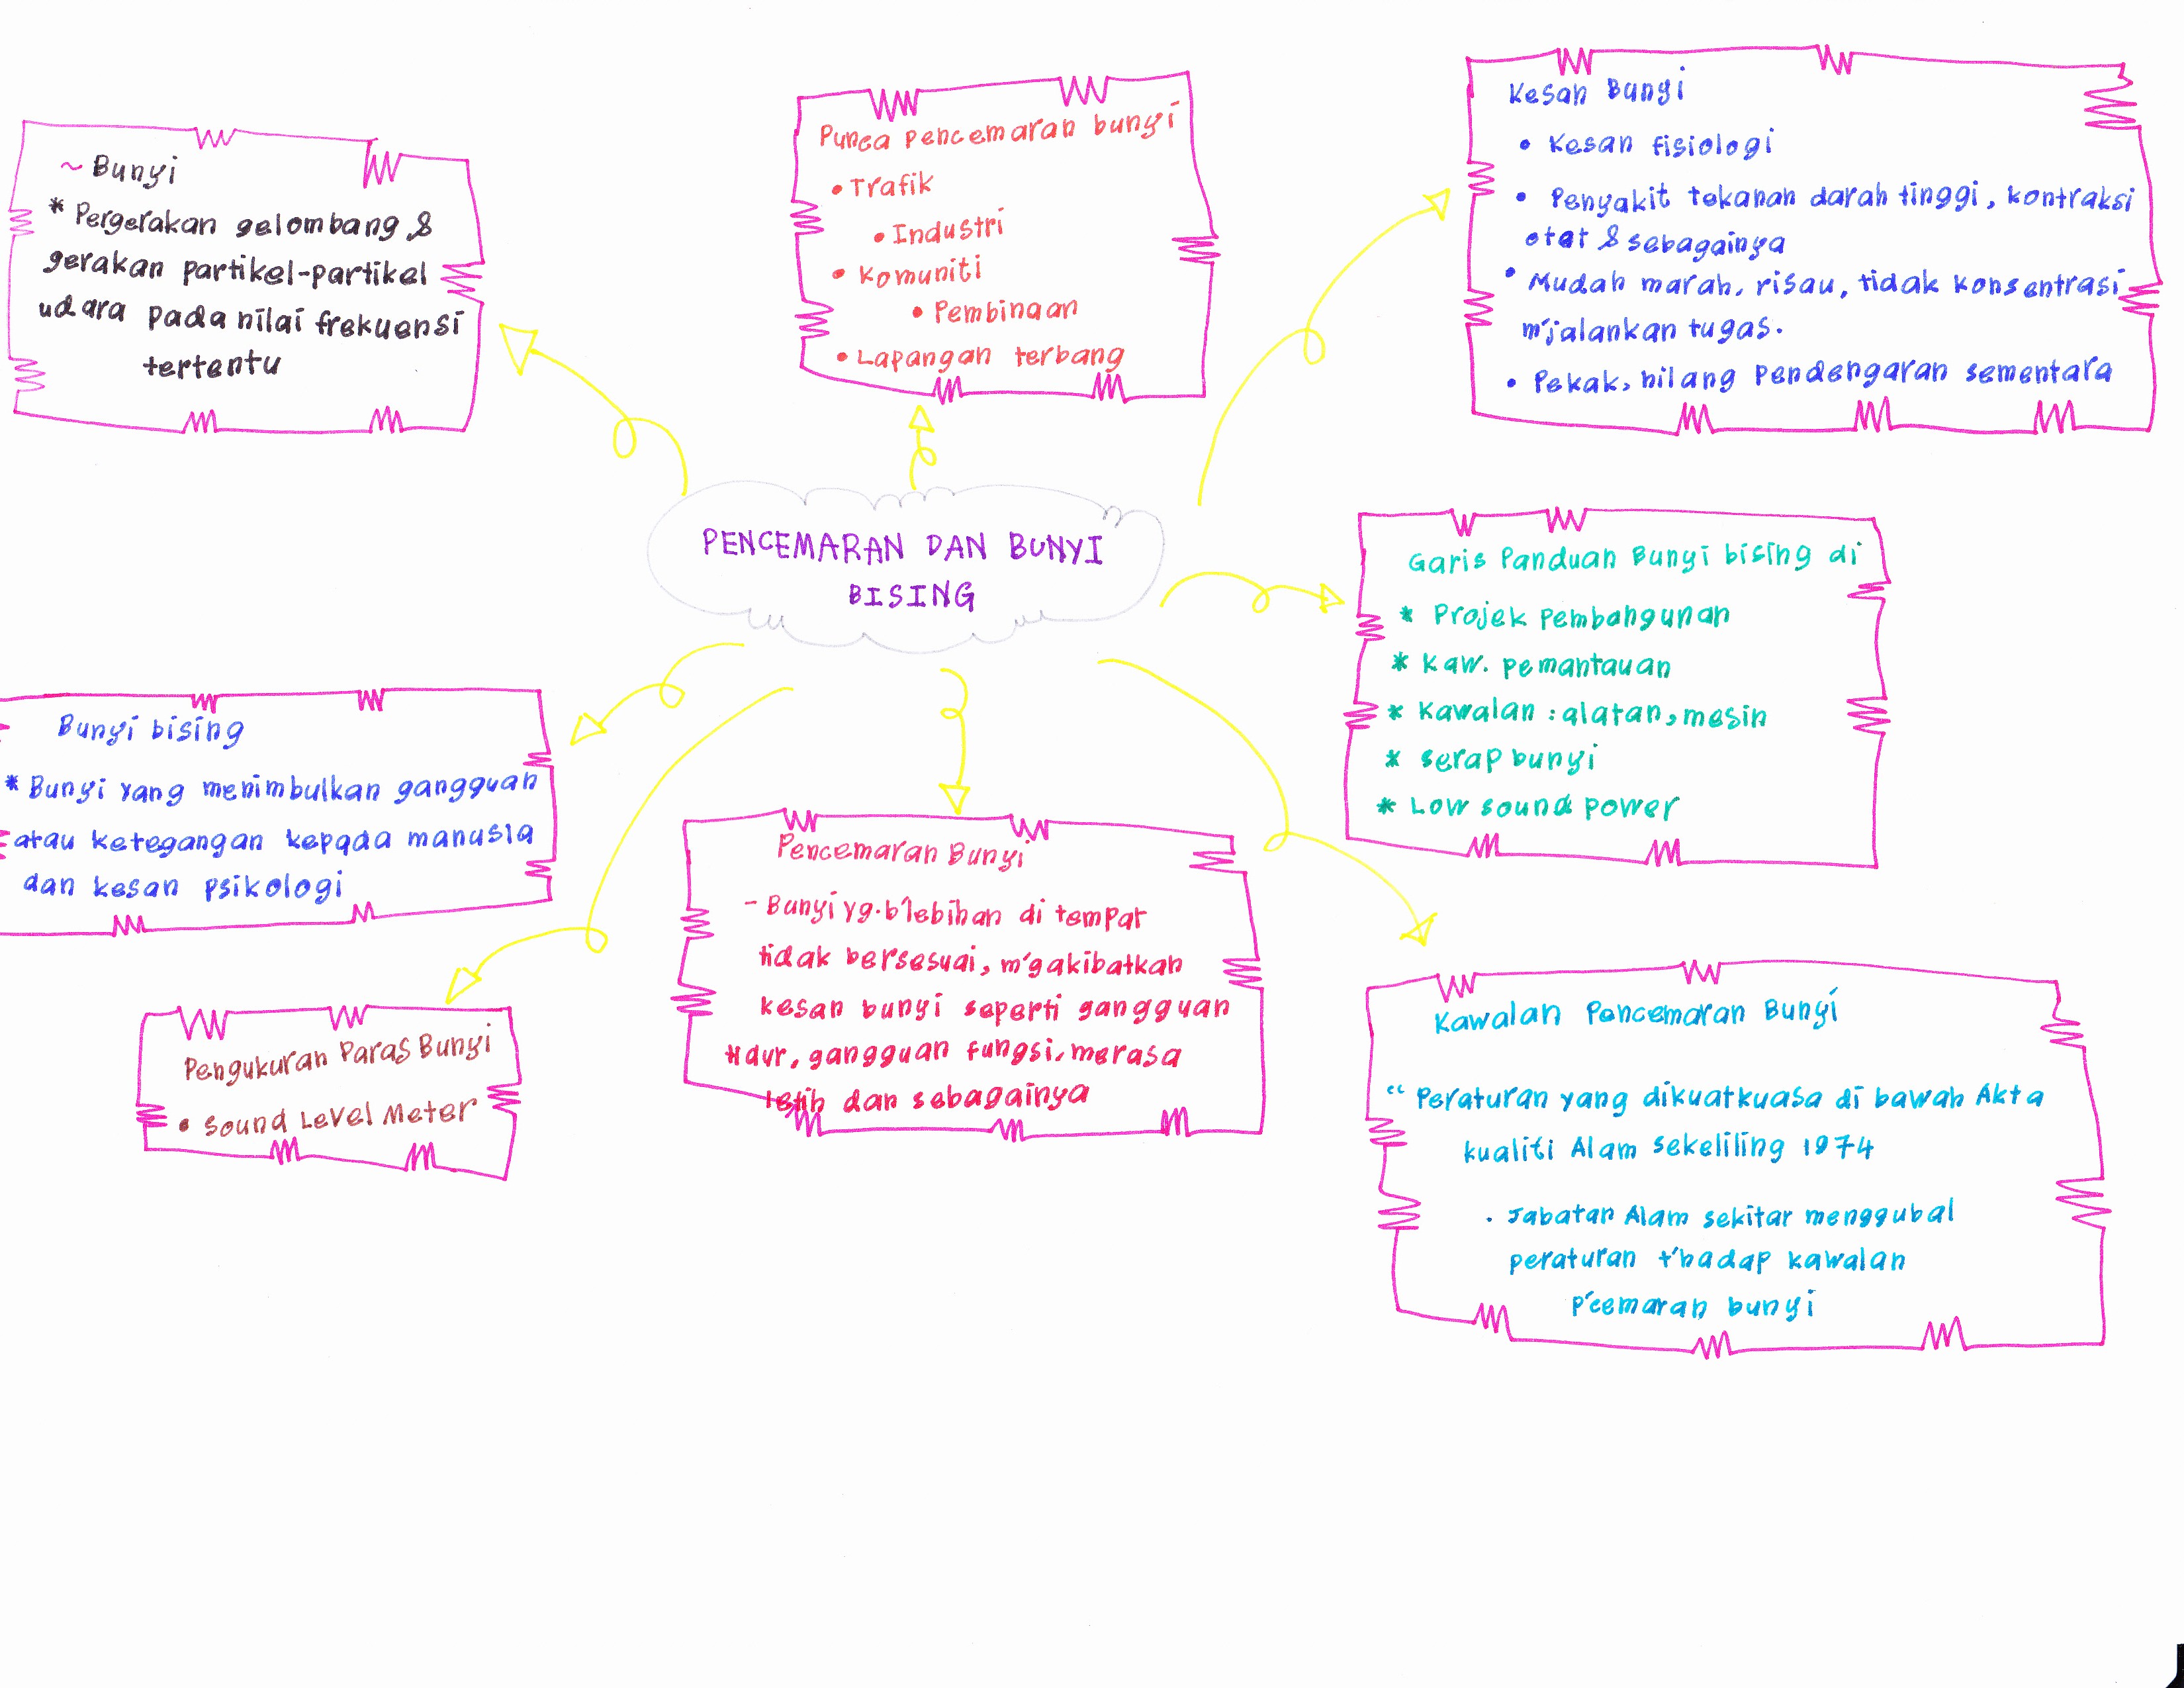 ~ Bunyi
* Pergerakan gelombang &
gerakan partikel-partikel
udara pada nilai frekuensi
tertentu
Punca pencemaran bunyi
• Trafik
• Industri
• Komuniti
• Pembinaan
• Lapangan terbang
Kesan Bunyi
• Kesan fisiologi
• Penyakit tekanan darah tinggi, kontraksi
otot & sebagainya
• Mudah marah, risau, tidak konsentrasi
m'jalankan tugas.
• Pekak, hilang pendengaran sementara
PENCEMARAN DAN BUNYI
BISING
Garis Panduan Bunyi bising di
* Projek pembangunan
* Kaw. pemantauan
* Kawalan : alatan, mesin
* serap bunyi
* Low sound power
Bunyi bising
* Bunyi yang menimbulkan gangguan
atau ketegangan kepada manusia
dan kesan psikologi
Pencemaran Bunyi
- Bunyi yg. b'lebihan di tempat
tidak bersesuai, m'gakibatkan
kesan bunyi seperti gangguan
tidur, gangguan fungsi, merasa
letih dan sebagainya
Pengukuran Paras Bunyi
• Sound Level Meter
Kawalan Pencemaran Bunyi
“ Peraturan yang dikuatkuasa di bawah Akta
kualiti Alam sekeliling 1974
. Jabatan Alam sekitar menggubal
peraturan t'hadap kawalan
p'cemaran bunyi